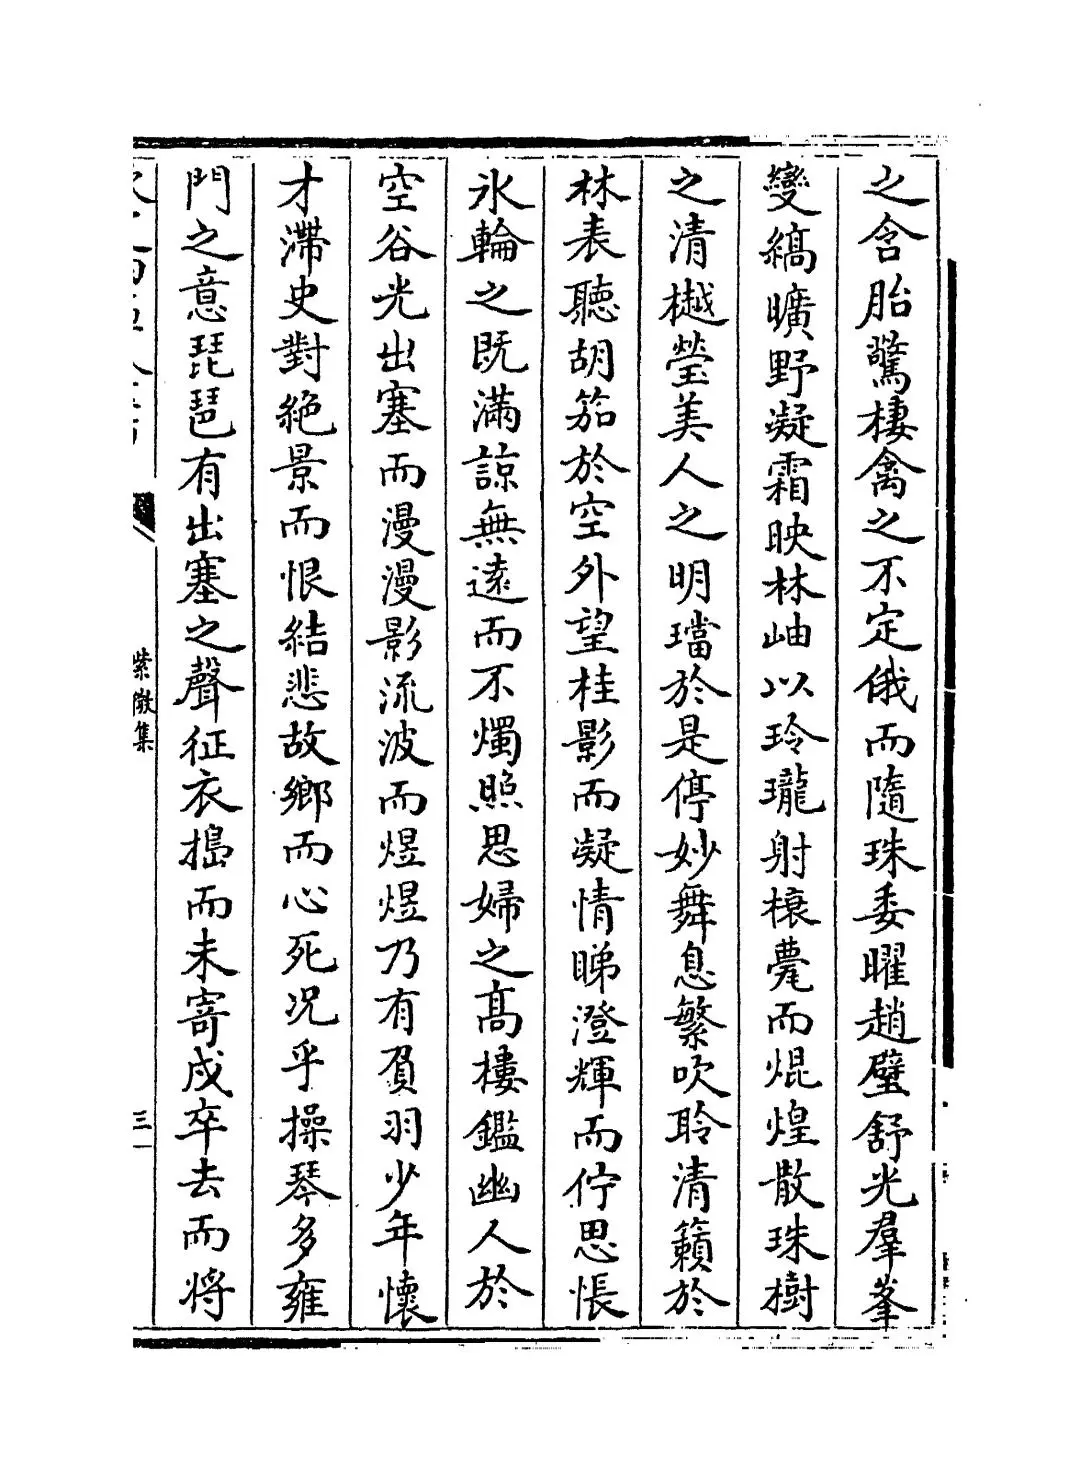 之含胎驚棲禽之不定俄而隨珠委曜趙璧舒光羣峯
變縞曠野凝霜映林岫以玲瓏射榱甍而焜煌散珠樹
之清樾瑩美人之明璫於是停妙舞息繁吹聆清籟於
林表聽胡笳於空外望桂影而凝情睇澄輝而佇思悵
氷輪之既滿諒無遠而不燭照思婦之髙樓鑑幽人於
空谷光出塞而漫漫影流波而煜煜乃有負羽少年懷
才滯史對絶景而恨結悲故鄉而心死况乎操琴多雍
門之意琵琶有出塞之聲征衣搗而未寄戍卒去而將
紫微集
三